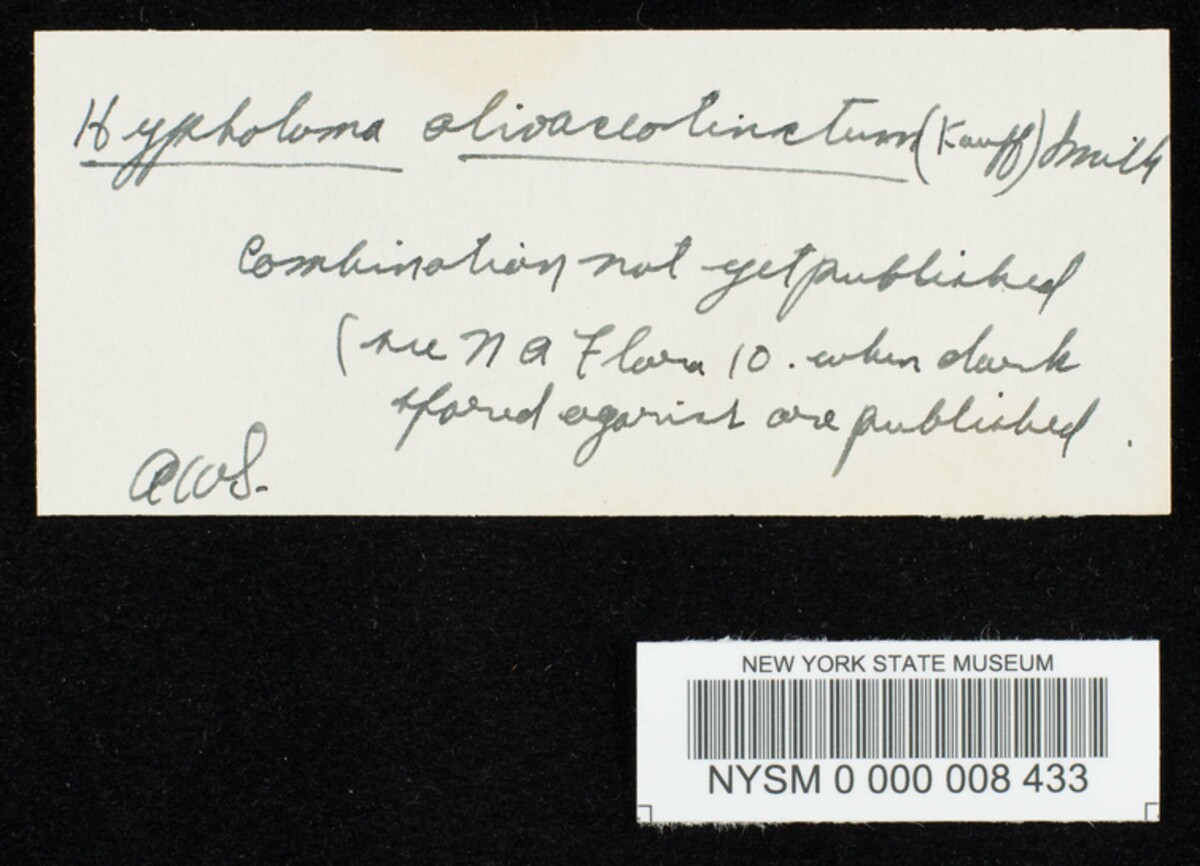 Hypholoma olivaceotinctum (Kauff) Smith
Combination not yet published
(see N A Flora 10. when dark
spored agarics are published.
AWS.
NEW YORK STATE MUSEUM
NYSM 0 000 008 433